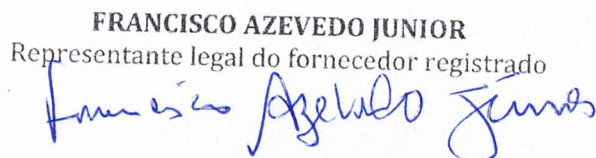 FRANCISCO AZEVEDO JUNIOR
Representante legal do fornecedor registrado
Francisco Azevedo Júnior